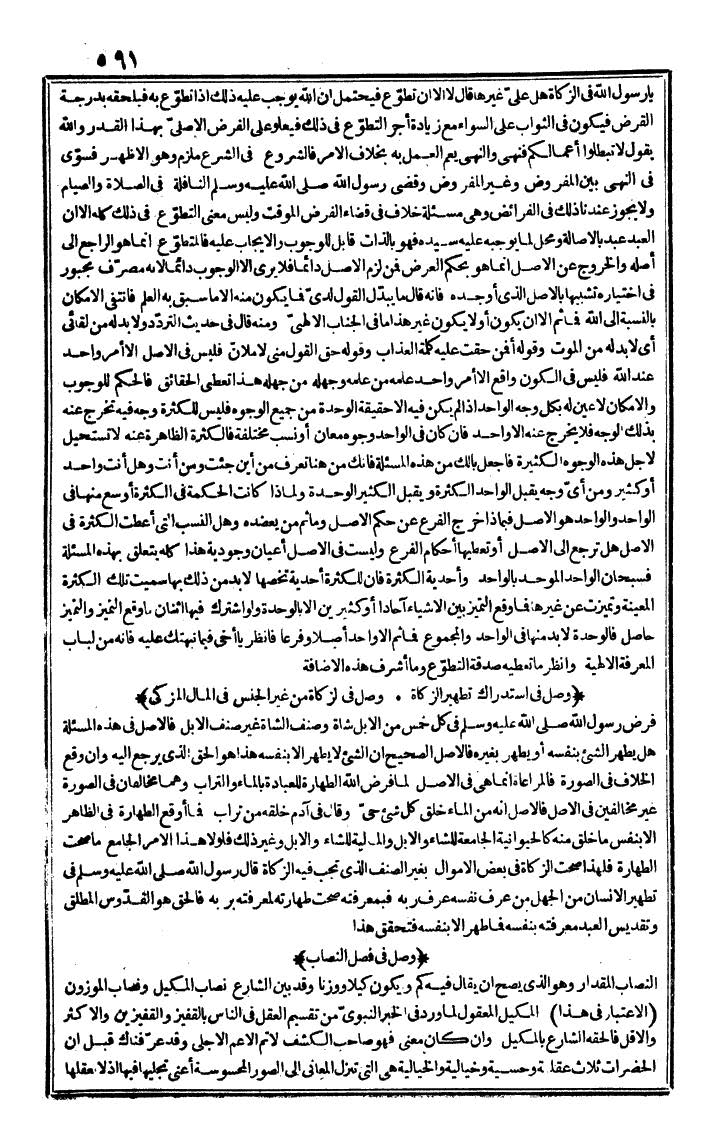 ٥٩١
يارسول الله فى الزكاة هل علىّ غيرها قال لا الا ان تطوّع فيحتمل ان الله يوجب عليه ذلك اذا تطوّع به فيلحقه بدرجة
الفرض فيكون فى الثواب على السواء مع زيادة أجر التطوّع فى ذلك فيعلو على الفرض الاصلىّ بهذا القدر والله
يقول لا تبطلوا أعمالكم فنهى والنهى يعم العمل به بخلاف الامر فالشروع فى الشرع ملزم وهو الاظهر فسوّى
فى النهى بين المفروض وغير المفروض وقضى رسول الله صلى الله عليه وسلم النافلة فى الصلاة والصيام
ولا يجوز عندنا ذلك فى الفرائض وهى مسئلة خلاف فى قضاء الفرض الموقت وليس معنى التطوّع فى ذلك كله الا ان
العبد عبد بالاصالة ومحل لما يوجبه عليه سيده فهو بالذات قابل للوجوب والايجاب عليه فالمتطوّع انما هو الراجع الى
أصله والخروج عن الاصل انما هو بحكم العرض فمن لزم الاصل دائما فلا يرى الا الوجوب دائما لانه مصرّف مجبور
فى اختياره تشبيها بالاصل الذى أوجده فانه قال ما يبدّل القول لدىّ فما يكون منه الا ما سبق به العلم فانتفى الامكان
بالنسبة الى الله فما ثم الا ان يكون أو لا يكون غير هذا ما فى الجناب الالهىّ ومنه قال فى حديث التردّد ولا بد له من لقائى
أى لا بد له من الموت وقوله أفمن حقت عليه كلمة العذاب وقوله حق القول منى لاملأن فليس فى الاصل الا أمر واحد
عند الله فليس فى الكون واقع الا أمر واحد علمه من علمه وجهله من جهله هذا تعطى الحقائق فالحكم للوجوب
والامكان لا عين له بكل وجه الواحد اذا لم يكن فيه الا حقيقة الوحدة من جميع الوجوه فليس للكثرة وجه فيه تخرج عنه
بذلك الوجه فلا يخرج عنه الا واحد فان كان فى الواحد وجوه معان أو نسب مختلفة فالكثرة الظاهرة عنه لا تستحيل
لاجل هذه الوجوه الكثيرة فاجعل بالك من هذه المسئلة فانك من هنا تعرف من أين جئت ومن أنت وهل أنت واحد
أو كثير ومن أىّ وجه يقبل الواحد الكثرة ويقبل الكثير الوحدة ولماذا كانت الحكمة فى الكثرة أوسع منها فى
الواحد والواحد هو الاصل فبماذا خرج الفرع عن حكم الاصل وما ثم من يعضده وهل النسب التى أعطت الكثرة فى
الاصل هل ترجع الى الاصل أو تعطيها أحكام الفرع وليست فى الاصل أعيان وجودية هذا كله يتعلق بهذه المسئلة
فسبحان الواحد الموحد بالواحد وأحدية الكثرة فان للكثرة أحدية تخصها لا بد من ذلك بها سميت تلك الكثرة
المعينة وتميزت عن غيرها فما وقع التميز بين الاشياء آحادا أو كثيرين الا بالوحدة ولو اشترك فيها اثنان ما وقع التميز والتميز
حاصل فالوحدة لا بد منها فى الواحد والمجموع فما ثم الا واحد أصلا وفرعا فانظر يا أخى فيما نبهتك عليه فانه من لباب
المعرفة الالهية وانظر ما تعطيه صدقة التطوّع وما أشرف هذه الاضافة
﴿وصل فى استدراك تطهير الزكاة . وصل فى زكاة من غير الجنس فى المال المزكى﴾
فرض رسول الله صلى الله عليه وسلم فى كل خمس من الابل شاة وصنف الشاة غير صنف الابل فالاصل فى هذه المسئلة
هل يطهر الشئ بنفسه أو يطهر بغيره فالاصل الصحيح ان الشئ لا يطهر الا بنفسه هذا هو الحق الذى يرجع اليه وان وقع
الخلاف فى الصورة فالمراعاة انما هى فى الاصل لما فرض الله الطهارة للعبادة بالماء والتراب وهما مخالفان فى الصورة
غير مخالفين فى الاصل فالاصل انه من الماء خلق كل شئ حىّ وقال فى آدم خلقه من تراب فما أوقع الطهارة فى الظاهر
الا بنفس ما خلق منه كالحيوانية الجامعة للشاء والابل والمالية للشاء والابل وغير ذلك فلولا هذا الامر الجامع ما صحت
الطهارة فلهذا صحت الزكاة فى بعض الاموال بغير الصنف الذى تجب فيه الزكاة قال رسول الله صلى الله عليه وسلم فى
تطهير الانسان من الجهل من عرف نفسه عرف ربه فبمعرفته صحت طهارته لمعرفته بربه فالحق هو القدّوس المطلق
وتقديس العبد معرفته بنفسه فما طهر الا بنفسه فتحقق هذا
﴿وصل فى فصل النصاب﴾
النصاب المقدار وهو الذى يصح ان يقال فيه كم ويكون كيلا ووزنا وقد بين الشارع نصاب المكيل ونصاب الموزون
(الاعتبار فى هذا) المكيل المعقول لما ورد فى الخبر النبوىّ من تقسيم العقل فى الناس بالقفيز والقفيزين والاكثر
والاقل فالحقه الشارع بالمكيل وان كان معنى فهو صاحب الكشف الاتم الاعم الاجلى وقد عرّفناك قبل ان
الحضرات ثلاث عقلية وحسية وخيالية والخيالية هى التى تنزل المعانى الى الصور المحسوسة أعنى تجليها فيها اذ لا نعقلها